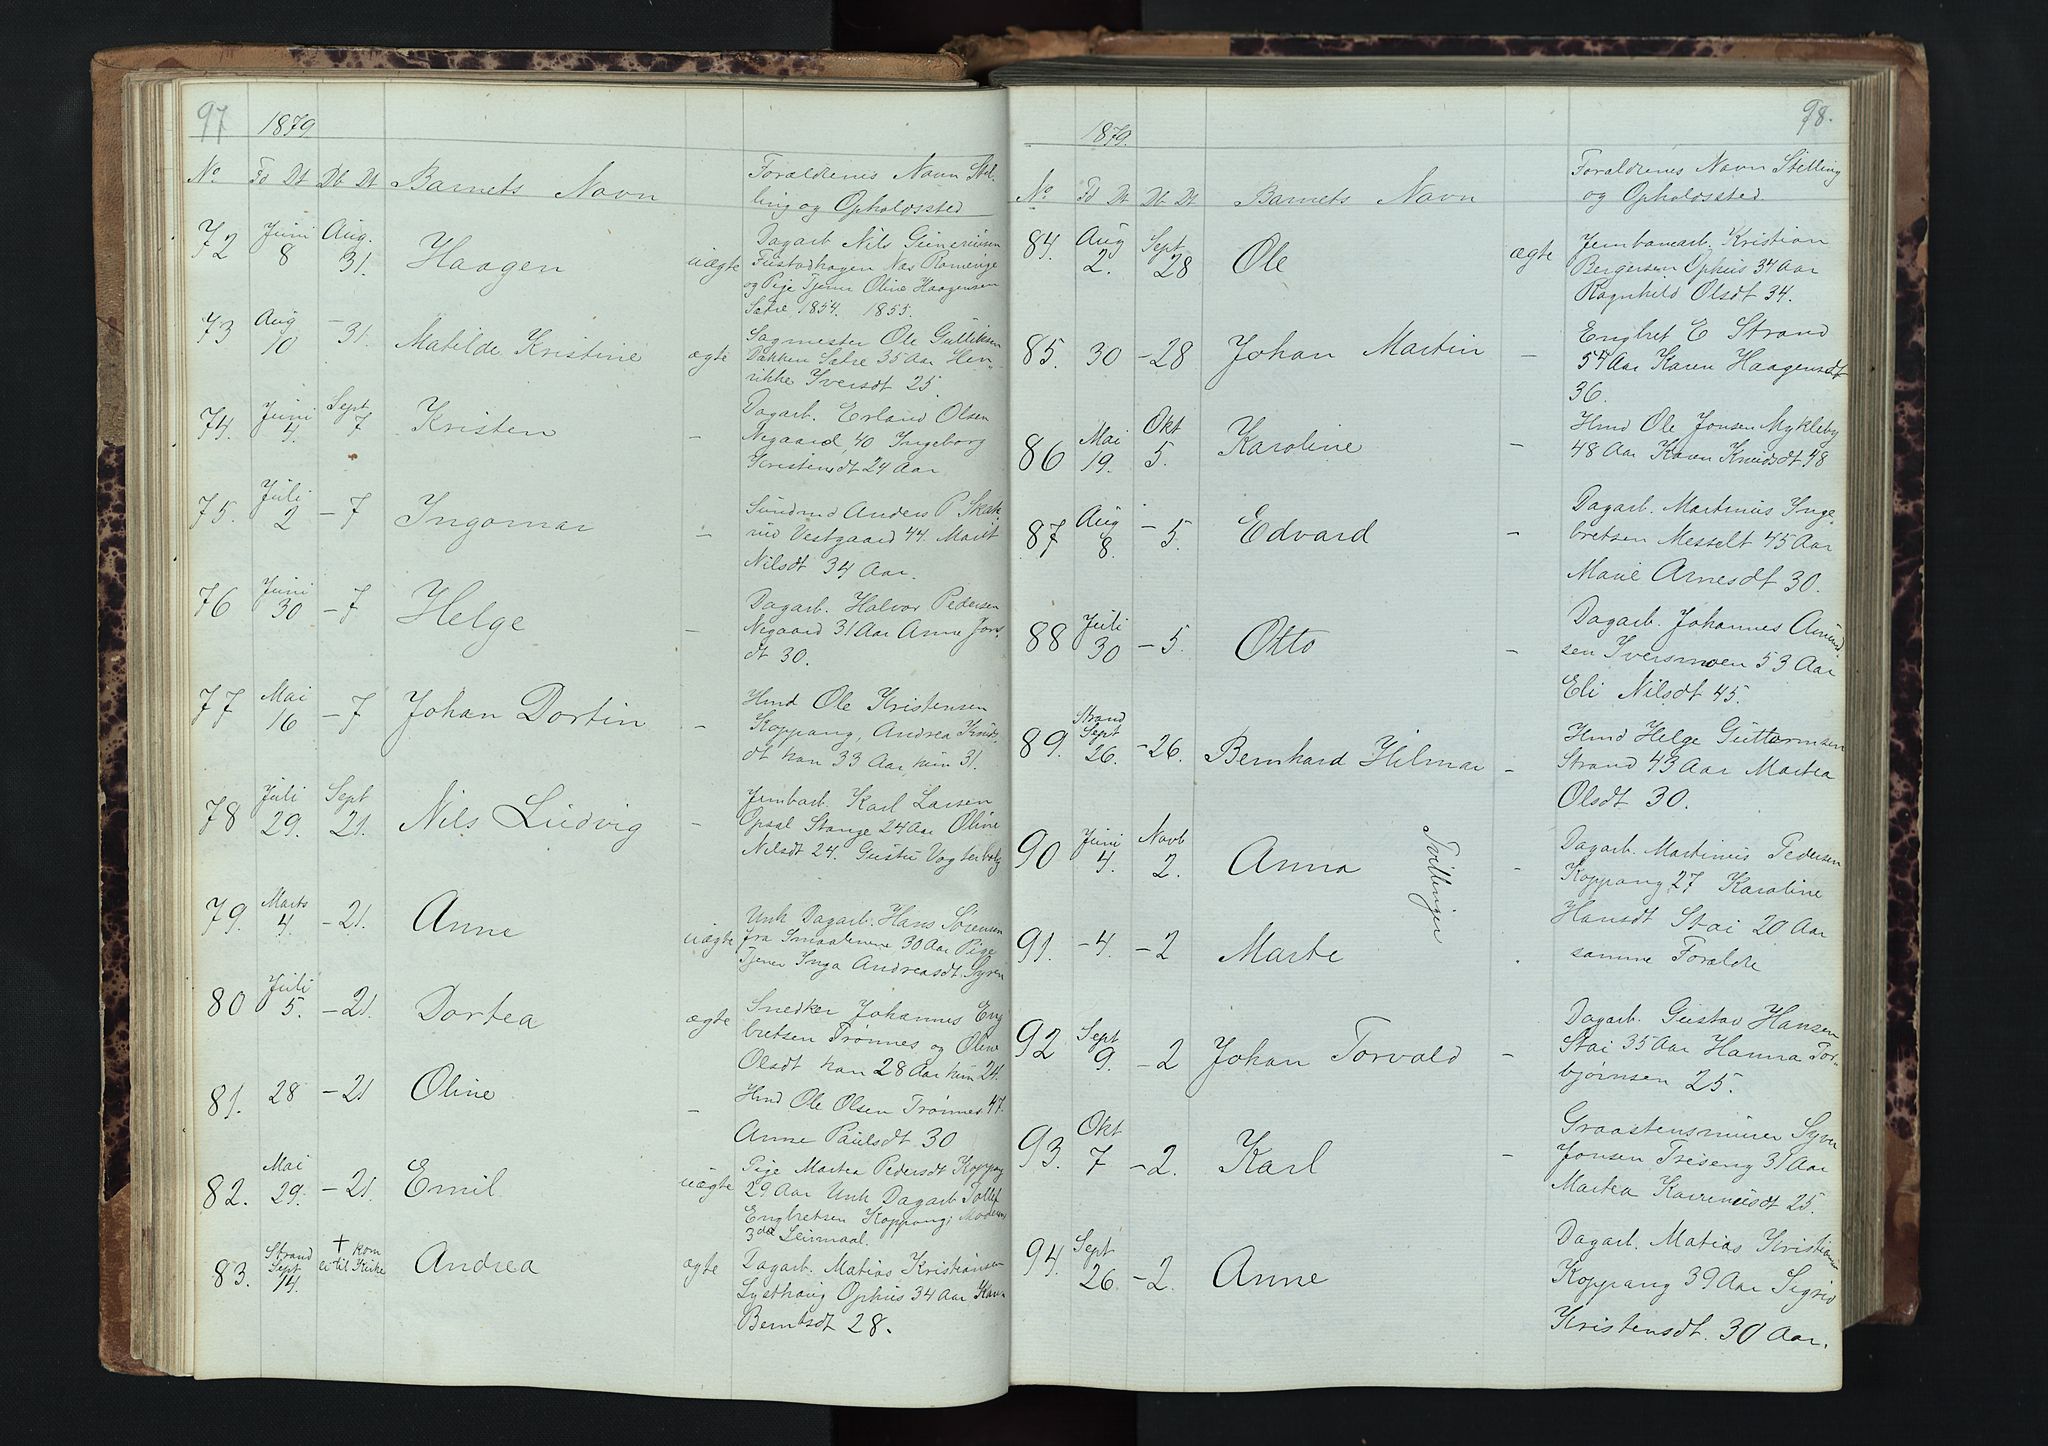 97
1879
No Fd Dt Db Dt Barnets Navn Forældrenes Navn Stil-
ling og Opholdssted
72 Juni 8 Aug. 31. Haagen uægte Dagarb. Nils Gunerusen
Næs Romerige
og Pige Tjener Oline Haagensen
Sætre 1854. 1855.
73 Aug 10 - 31. Matilde Kristine ægte Sagmester Ole Gulliksen
Bakken Sætre 35 Aar Hen-
rikke Iversdt 25.
74. Juni 4. Sept 7 Kristen - Dagarb. Erland Olsen
Negaard 40 Ingeborg
Kristensdt 24 Aar
75. Juli 2 - 7 Ingomar - Anders P Skak-
rud Vestgaard 44. Marit
Nilsdt 34 Aar.
76 Juni 30 - 7 Helge - Dagarb. Halvor Pedersen
Negaard 31 Aar Anne Jons
dt 30.
77 Mai 16 - 7 Johan Dortin - Hmd Ole Kristensen
Koppang, Andrea Knuds
dt han 33 Aar, hun 31.
78 Juli 29. Sept 21. Nils Ludvig - Jernbarb. Karl Larsen
Opsal Stange 24 Aar Oline
Nilsdt 24. Gustu Vogterbolig
79. Marts 4. - 21. Anne uægte Unk Dagarb. Hans Sørensen
fra Smaalenene 30 Aar Pige
Tjener Inga Andreasdt
80 Juli 5. - 21. Dortea ægte Snedker Johannes Eng
bretsen Trønnes og Oline
Olsdt han 28 Aar hun 24.
81. 28 - 21 Oline - Hmd Ole Olsen Trønnes 47.
Anne Paulsdt 30
82. Mai 29. - 21. Emil uægte Pige Martea Pedersdt Koppang
29 Aar Unk Dagarb Tollef
Engbretsen Koppang; Moderens
3die Leiermaal.
83. Strand Sept 14. † kom ei til Kirke Andrea ægte Dagarb. Matias Kristiansen
Lysthaug Ophus 34 Aar Karen
Berntsdt 28.
98.
1879.
No Fd Dt Db Dt Barnets Navn Forældrenes Navn Stilling
og Opholdssted.
84. Aug 2. Sept 28 Ole ægte Jernbanearb. Kristian
Bergersen Ophus 34 Aar
Ragnhild Olsdt 34.
85. 30 - 28 Johan Martin - Engbret E Strand
54 Aar Karen Haagensdt
36.
86 Mai 19. Okt 5. Karoline - Hmd Ole Jonsen Mykleby
48 Aar Karen Knudsdt 48
87 Aug 8. - 5. Edvard - Dagarb. Martinus Inge-
bretsen Messelt 45 Aar
Marie Arnesdt 30.
88 Juli 30 - 5. Otto - Dagarb. Johannes Amund
sen Iversmoen 53 Aar
Eli Nilsdt 45.
89. Strand Sept 26. - 26. Bernhard Hilmar - Hmd Helge Guttormsen
Strand 43 Aar Martea
Olsdt 30.
90 Juni 4. Novb 2. Anna Tvillinger - Dagarb. Martinus Pedersen
Koppang 27 Karoline
Hansdt Stai 20 Aar
91. - 4. - 2 Marte . samme Forældre
92 Sept 9. - 2 Johan Torvald - Dagarb. Gustav Hansen
Stai 35 Aar Hanna Tor-
bjørnsen 25.
93. Okt 7 - 2. Karl - Graastensmurer Syver
Jonsen Treseng 31 Aar
Martea Karenusdt 25.
94. Sept 26 - 2. Anne Dagarb. Matias Kristiansen
Koppang 39 Aar Sigrid
Kristensdt. 30 Aar.